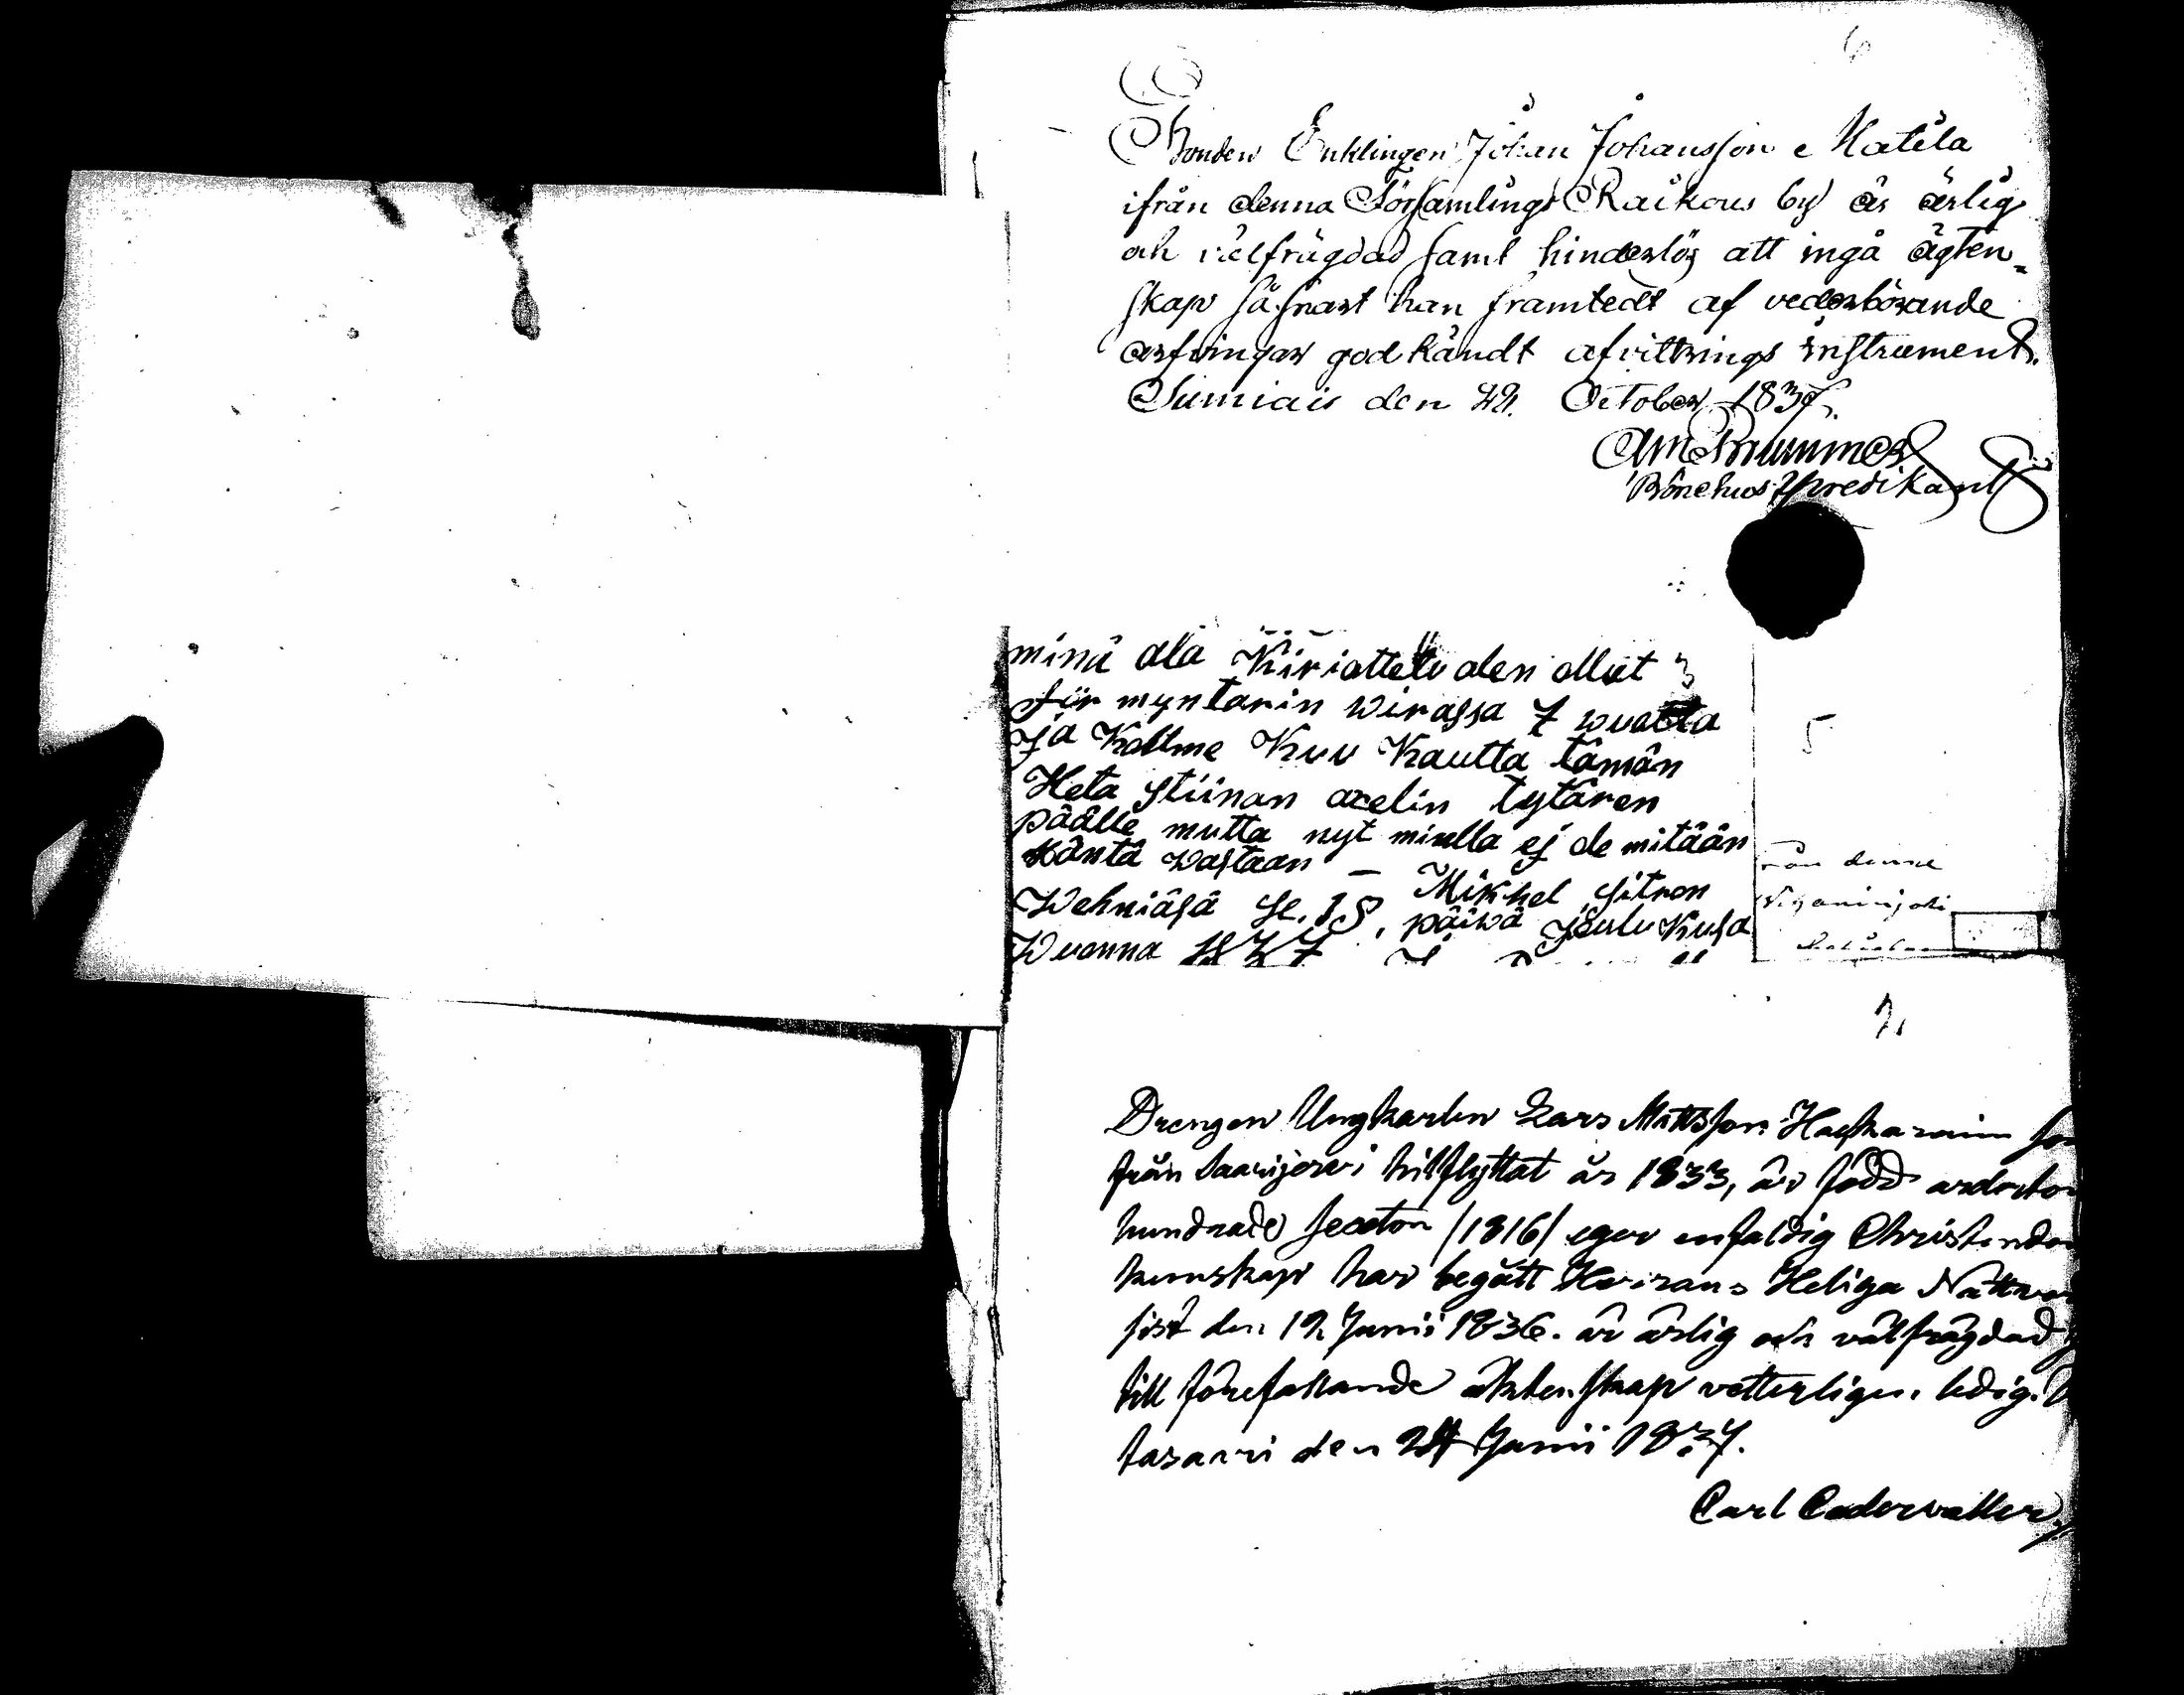 6
Bonden Enklingen Johan Johansson Matila
ifrån denna Församlings Raikous by är ärlig
och välfrägdad samt hinderlös att ingå ägten=
skap så snart han framtedt af vederbörande
arfvingar godkändt afvittrings instrument.
Sumiais den 22. October 1837.
Brummer
Bönehus Predikant
minä alla Kiriattetu olen ollut
för myntarin wirassa 7 wuotta
ja Kolme Kuu Kautta tämän
Heta Stiinan axelin tytären
päälle mutta nyt minulla ej ole mitään
wastaan — Mikkel Sitron
Wehniäsä se. 18. päiwä Joulu Kusa
Wuonna 1837
5
från denna
7.
Drengen Ungkarlen Lars Mattsson
från Saarijerwi hitflyttat år 1833, är född aderton
hundrade sexton /1816/ eger enfaldig Christendom
kunskap har begått Herrans Heliga Nattvar
sist den 19 Junii 1836. är ärlig och välfrägdad
till förefallande äktenskap vetterligen ledig.
tasaari den 24 Junii 1837.
Carl Cedervaller